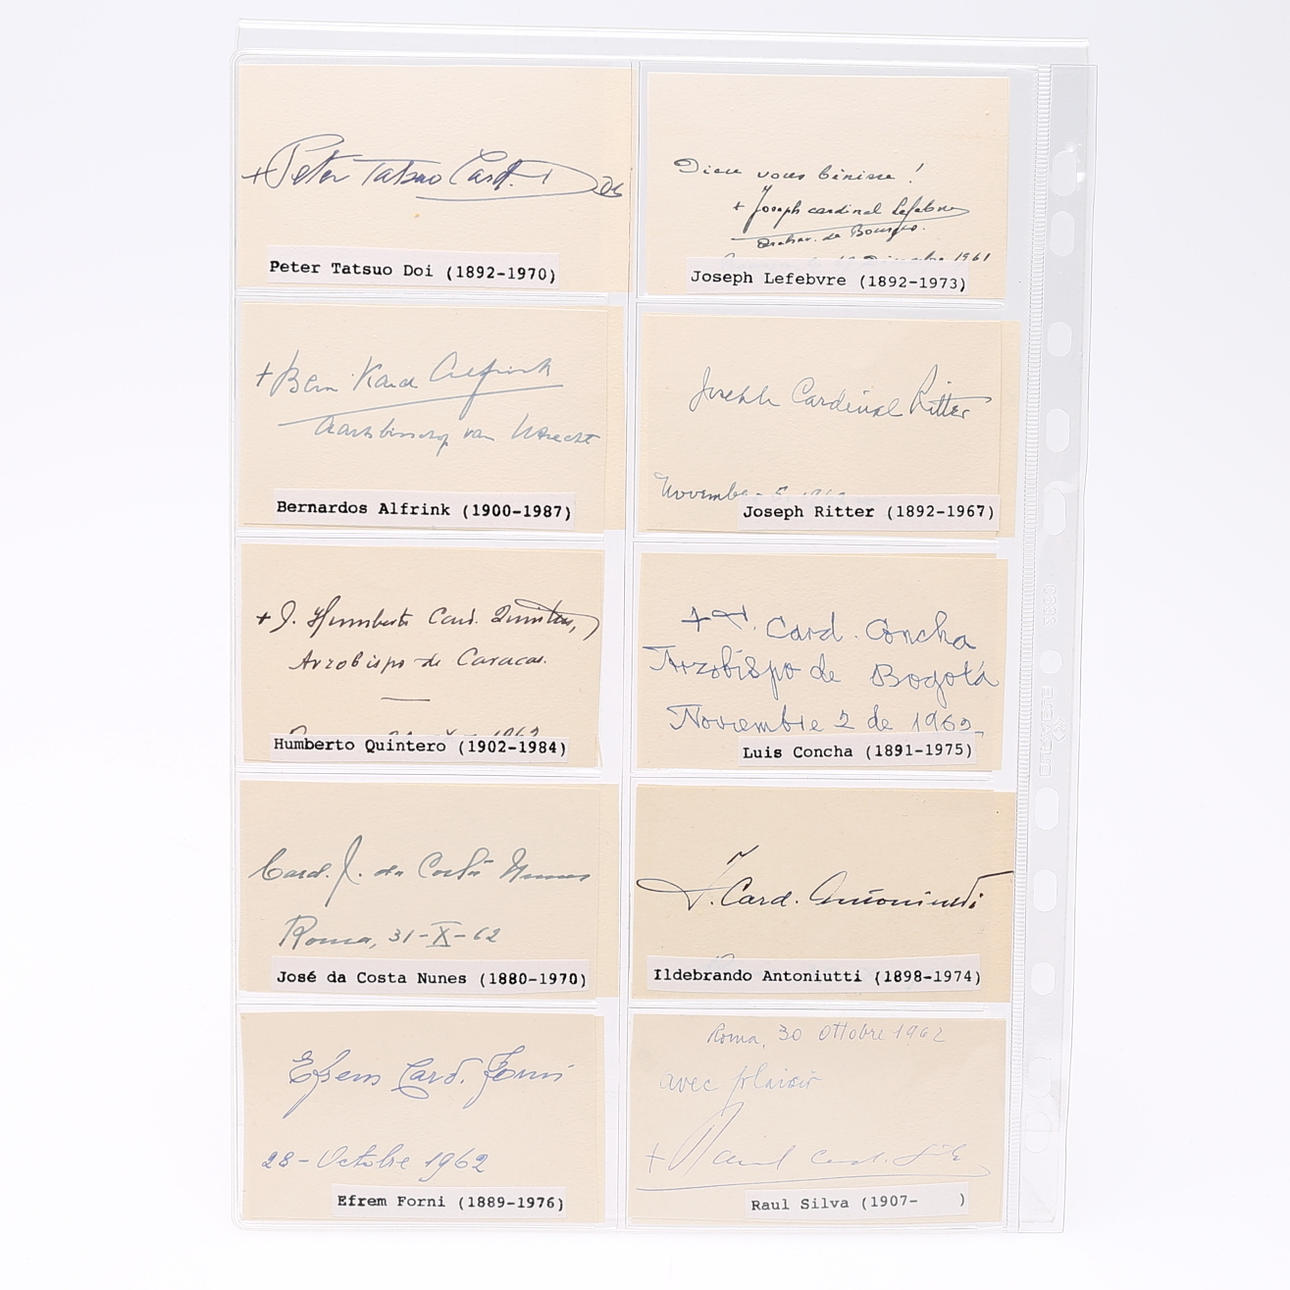 + Peter Tatsuo Card. Doi
Peter Tatsuo Doi (1892-1970)
Dieu vous bénisse !
+ Joseph cardinal Lefebvre
archev. de Bourges.
1961
Joseph Lefebvre (1892-1973)
+ Bern Kard Alfrink
Aartsbisschop van Utrecht
Bernardos Alfrink (1900-1987)
Joseph Cardinal Ritter
November 5, 1962
Joseph Ritter (1892-1967)
+ J. Humberto Card. Quintero,
Arzobispo de Caracas.
1962
Humberto Quintero (1902-1984)
+ Card. Concha
Arzobispo de Bogotá
Noviembre 2 de 1962
Luis Concha (1891-1975)
Card. J. da Costa Nunes
Roma, 31-X-62
José da Costa Nunes (1880-1970)
I. Card. Antoniutti
Ildebrando Antoniutti (1898-1974)
Efrem Card. Forni
28-Octobre 1962
Efrem Forni (1889-1976)
Roma, 30 Ottobre 1962
avec plaisir
+ Raúl Card. Silva
Raul Silva (1907- )